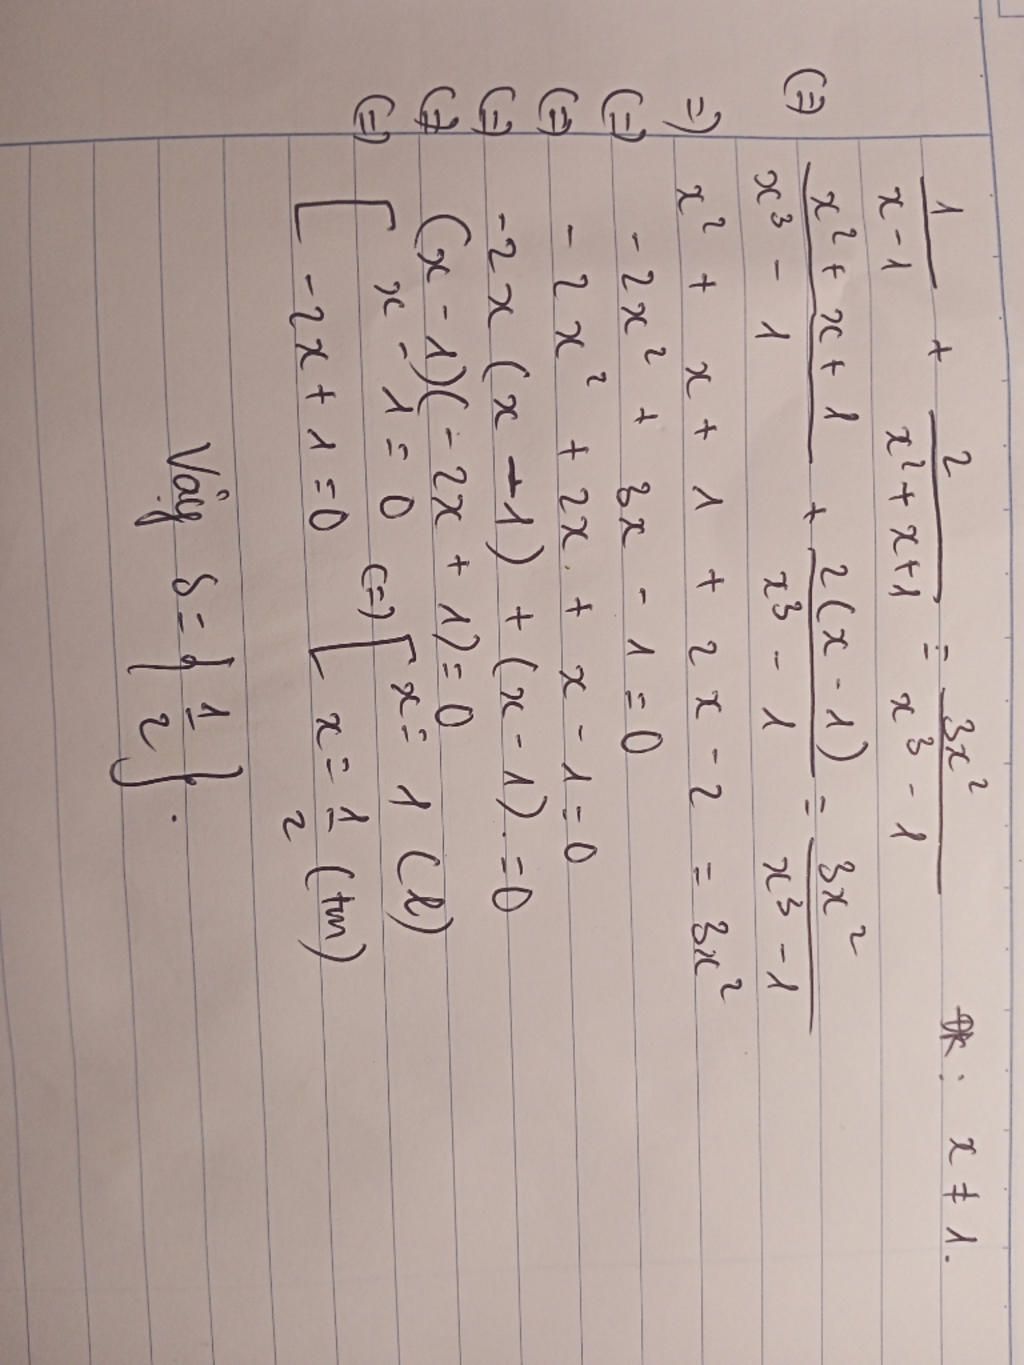 1/(x-1) + 2/(x²+x+1) = 3x²/(x³-1) ĐK: x ≠ 1.
(=) (x²+x+1)/(x³-1) + 2(x-1)/(x³-1) = 3x²/(x³-1)
=) x² + x + 1 + 2x - 2 = 3x²
(=) -2x² + 3x - 1 = 0
(=) -2x² + 2x + x - 1 = 0
(=) -2x(x-1) + (x-1) = 0
(=) (x-1)(-2x+1) = 0
(=) [ x-1=0 (=) [ x=1 (l)
-2x+1=0 x=1/2 (tm)
Vậy S={1/2}.